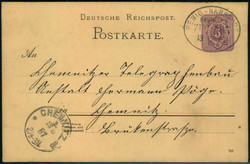 DEUTSCHE REICHSPOST.
POSTKARTE.
An
Chemnitzer Telegraphenbau
Anstalt Hermann Pöge.
Chemnitz
Brückenstraße.
CHEMNITZ
5